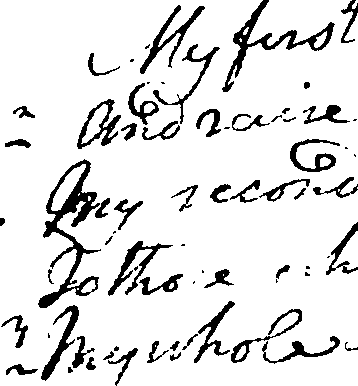 My first
and raise
My second
To those
My whole